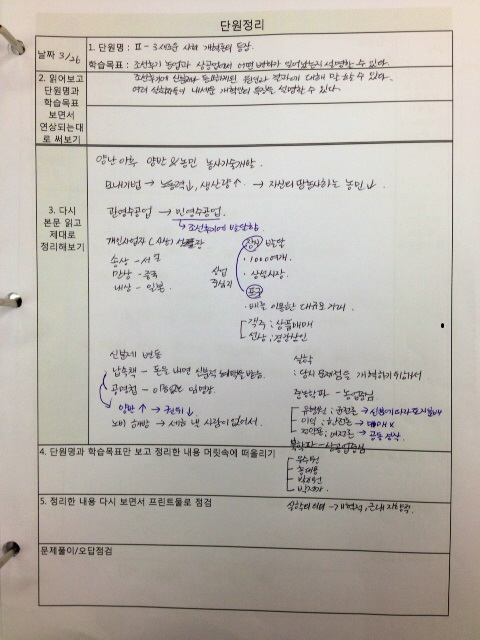 단원정리
날짜 3/26
1. 단원명 : Ⅱ-3 새로운 사회 개혁론의 등장
학습목표 : 조선후기 농업과 상공업에서 어떤 변화가 일어났는지 설명할 수 있다.
2. 읽어보고 단원명과 학습목표 보면서 연상되는대로 써보기
조선후기에 신분제가 동요하게된 원인과 결과에 대해 말할 수 있다.
여러 실학자들이 내세운 개혁안의 특징을 설명할 수 있다.
3. 다시 본문 읽고 제대로 정리해보기
양난 이후 양반&농민 농사기술개발.
모내기법 → 노동력↓, 생산량↑ → 자신의 땅농사하는 농민↓.
관영수공업 → 민영수공업.
↳ 조선후기에 발달함
개인사업자 (사상) 성장
송상 -
만상 - 중국
내상 - 일본
상업 중심지
장시 발달
· 1000여개.
· 상설시장.
포구
· 배를 이용한 대규모 거래.
객주 ; 상품매매
선상 ; 경강상인
신분제 변동
납속책 - 돈을 내면 신분적 혜택을
공명첩 - 이름없는 임명장.
양반↑ → 권위↓
노비 해방 → 세금 낼 사람이 없어서.
실학
: 당시 문제점을 개혁하기위해서
중농학파 - 농업중심
유형원 ; 균전론 → 신분에따라 토지분배
이익 ; 한전론 → 매매 X
정약용 ; 여전론 → 공동 경작.
북학파 - 상공업중심
유수원
홍대용
박지원
박제가.
4. 단원명과 학습목표만 보고 정리한 내용 머릿속에 떠올리기
5. 정리한 내용 다시 보면서 프린트물로 점검
실학의 의의 - 개혁적, 근대 지향적.
문제풀이/오답점검